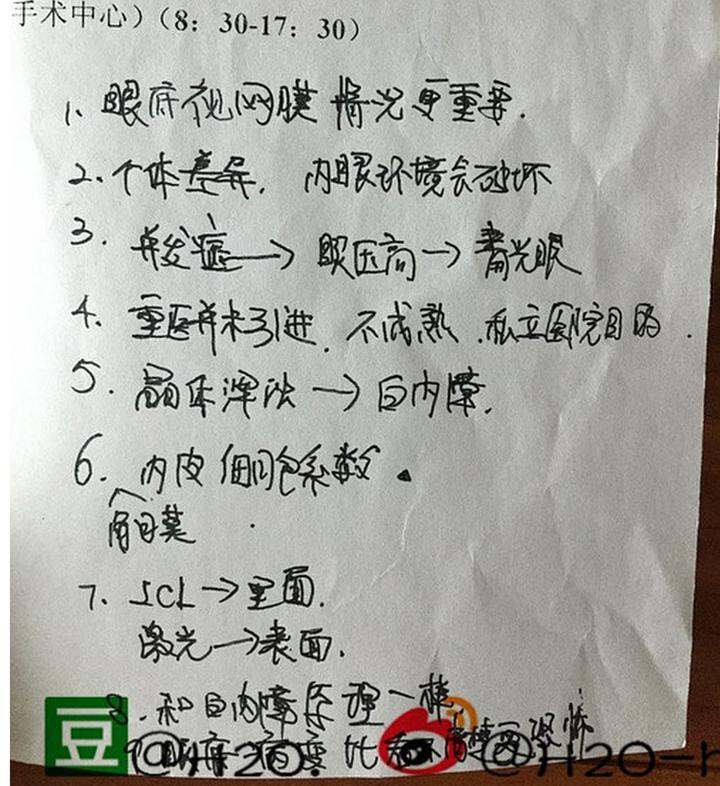 手术中心）（8：30-17：30）
1、眼底视网膜 情况更重要.
2、个体差异， 内眼环境会破坏
3. 并发症→ 眼压高→ 青光眼
4. 重医并未引进，不成熟，私立医院目的.
5. 晶体浑浊 → 白内障.
6. 内皮细胞系数.
角膜
7. ICL→里面.
激光→表面.
8. 和白内障原理一样
豆 @H2O. @H2O-